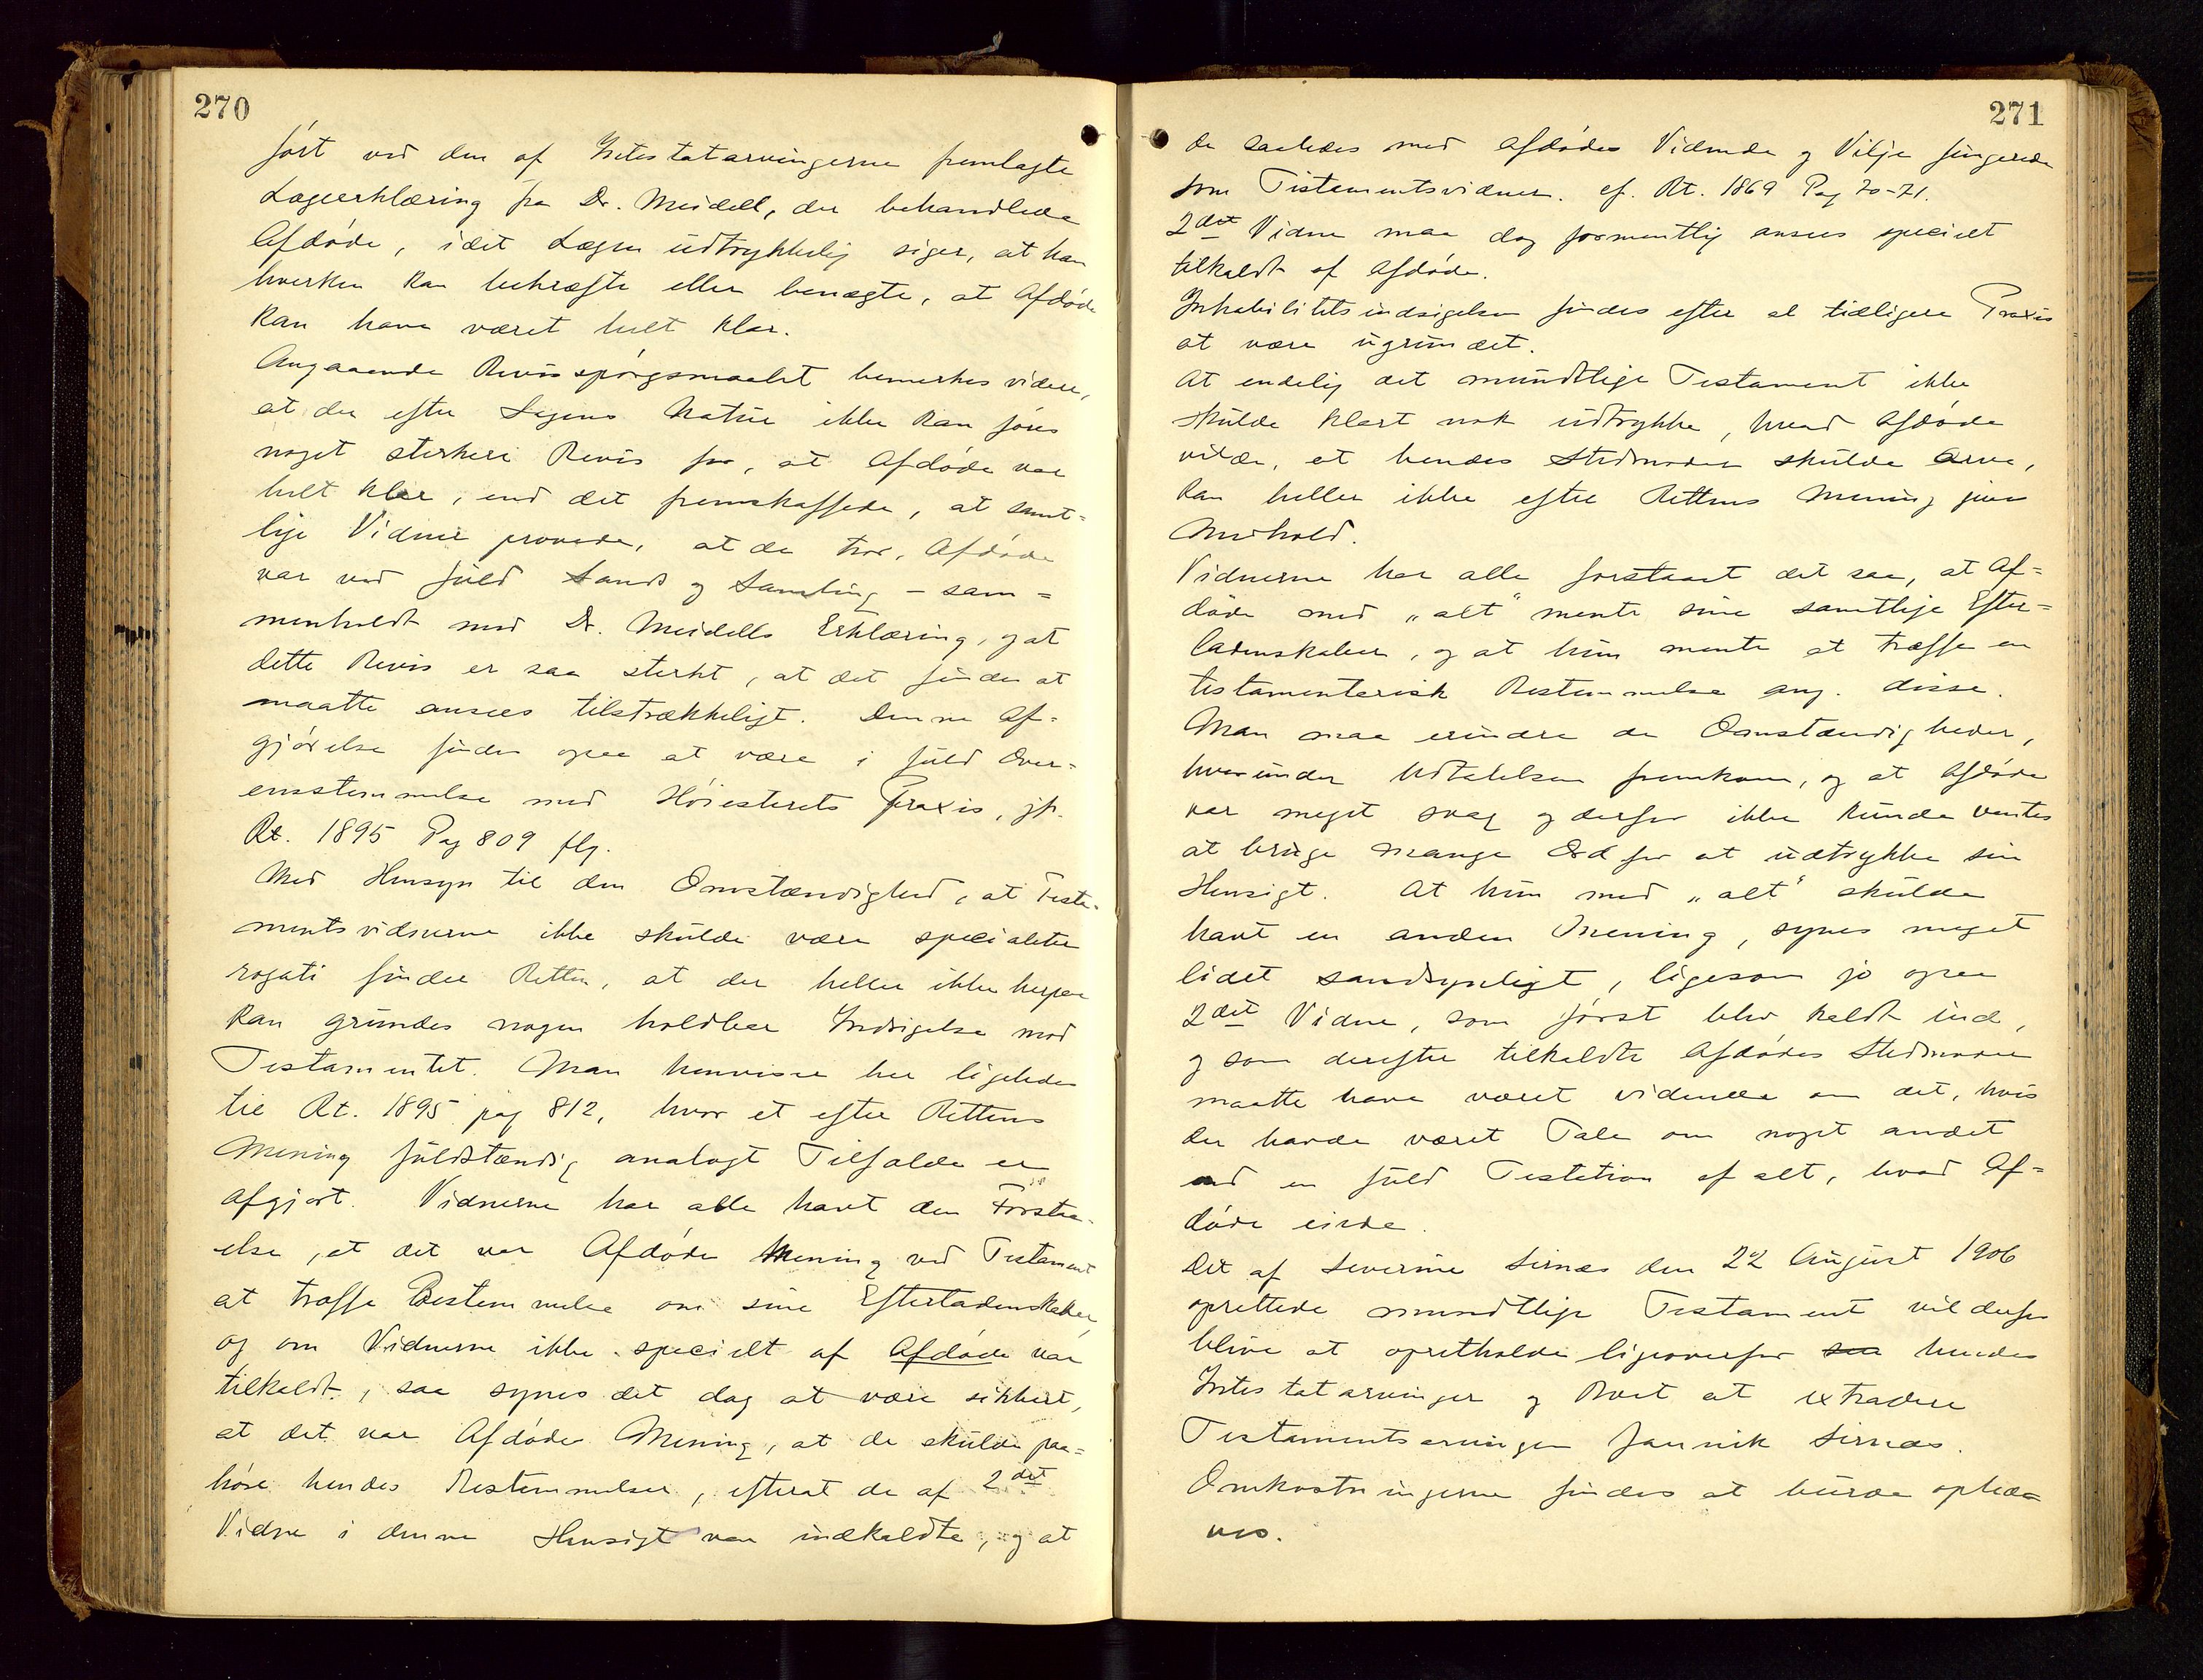 270
ført ved den af Intestatarvingerne fremlagte
Lægeerklæring fra Dr. Meidell, der behandlede
Afdøde, idet Lægen udtrykkelig siger, at han
hverken kan bekræfte eller benægte, at Afdøde
kan have været helt klar.
Angaaende Bevisspørgsmaalet bemerkes videre,
at der efter Sagens Natur ikke kan føres
noget sterkere Bevis for, at Afdøde var
helt klar, end det fremskaffede, at samt-
lige Vidner provede, at de tror, Afdøde
var ved fuld Sands og Samling – sam=
menholdt med Dr. Meidells Erklæring, og at
dette Bevis er saa sterkt, at det findes at
maatte ansees tilstrækkeligt. Denne Af=
gjørelse findes ogsaa at være i fuld Over=
ensstemmelse med Høiesterets Praxis, jfr.
Rt. 1895 Pag 809 flg.
Med Hensyn til den Omstændighed, at Testa-
mentsvidnerne ikke skulde være specialiter
rogati finder Retten, at der heller ikke herpaa
kan grundes nogen holdbar Indsigelse mod
Testamentet. Man henviser her ligeledes
til Rt. 1895 pag 812, hvor et efter Rettens
Mening fuldstændig analogt Tilfælde er
afgjort. Vidnerne har alle havt den Forstaa-
else, at det var Afdødes Mening ved Testament
at træffe Bestemmelse om sine Efterladenskaber,
og om Vidnerne ikke specielt af Afdøde var
tilkaldt, saa synes det dog at være sikkert,
at det var Afdødes Mening, at de skulde paa=
høre hendes Bestemmelser, efterat de af 2det
Vidne i denne Hensigt var indkaldte, og at
271
de saaledes med Afdødes Vidende og Vilje fungerede
som Testamentsvidner. cf. Rt. 1869 Pag 70-71.
2det Vidne maa dog formentlig ansees specielt
tilkaldt af Afdøde.
Inhabilitetsindsigelsen findes efter al tidligere Praxis
at være ugrundet.
At endelig det mundtlige Testament ikke
skulde klart nok udtrykke, hvad Afdøde
vilde, at hendes Stedmoder skulde arve,
kan heller ikke efter Rettens Mening gives
Medhold.
Vidnerne har alle forstaaet det saa, at Af=
døde med „alt“ mente sine samtlige Efter=
ladenskaber, og at hun mente at træffe en
testamentarisk Bestemmelse ang. disse.
Man maa erindre de Omstændigheder,
hvorunder Udtalelsen fremkom, og at Afdøde
var meget svag og derfor ikke kunde ventes
at bruge mange Ord for at udtrykke sin
Hensigt. At hun med „alt“ skulde
havt en anden Mening, synes meget
lidet sandsynligt, ligesom jo ogsaa
2det Vidne, som først blev kaldt ind,
og som derefter tilkaldte Afdødes Stedmoder
maatte have været vidende om det, hvis
der havde været Tale om noget andet
end en fuld Testation af alt, hvad Af=
døde eiede.
Det af Severine Sirnes den 22 August 1906
oprettede mundtlige Testament vil derfor
blive at opretholde ligeoverfor saa hendes
Intestatarvinger og Boet at extradere
Testamentsarvingen Jannik Sirnes.
Omkostningerne findes at burde ophæ=
ves.